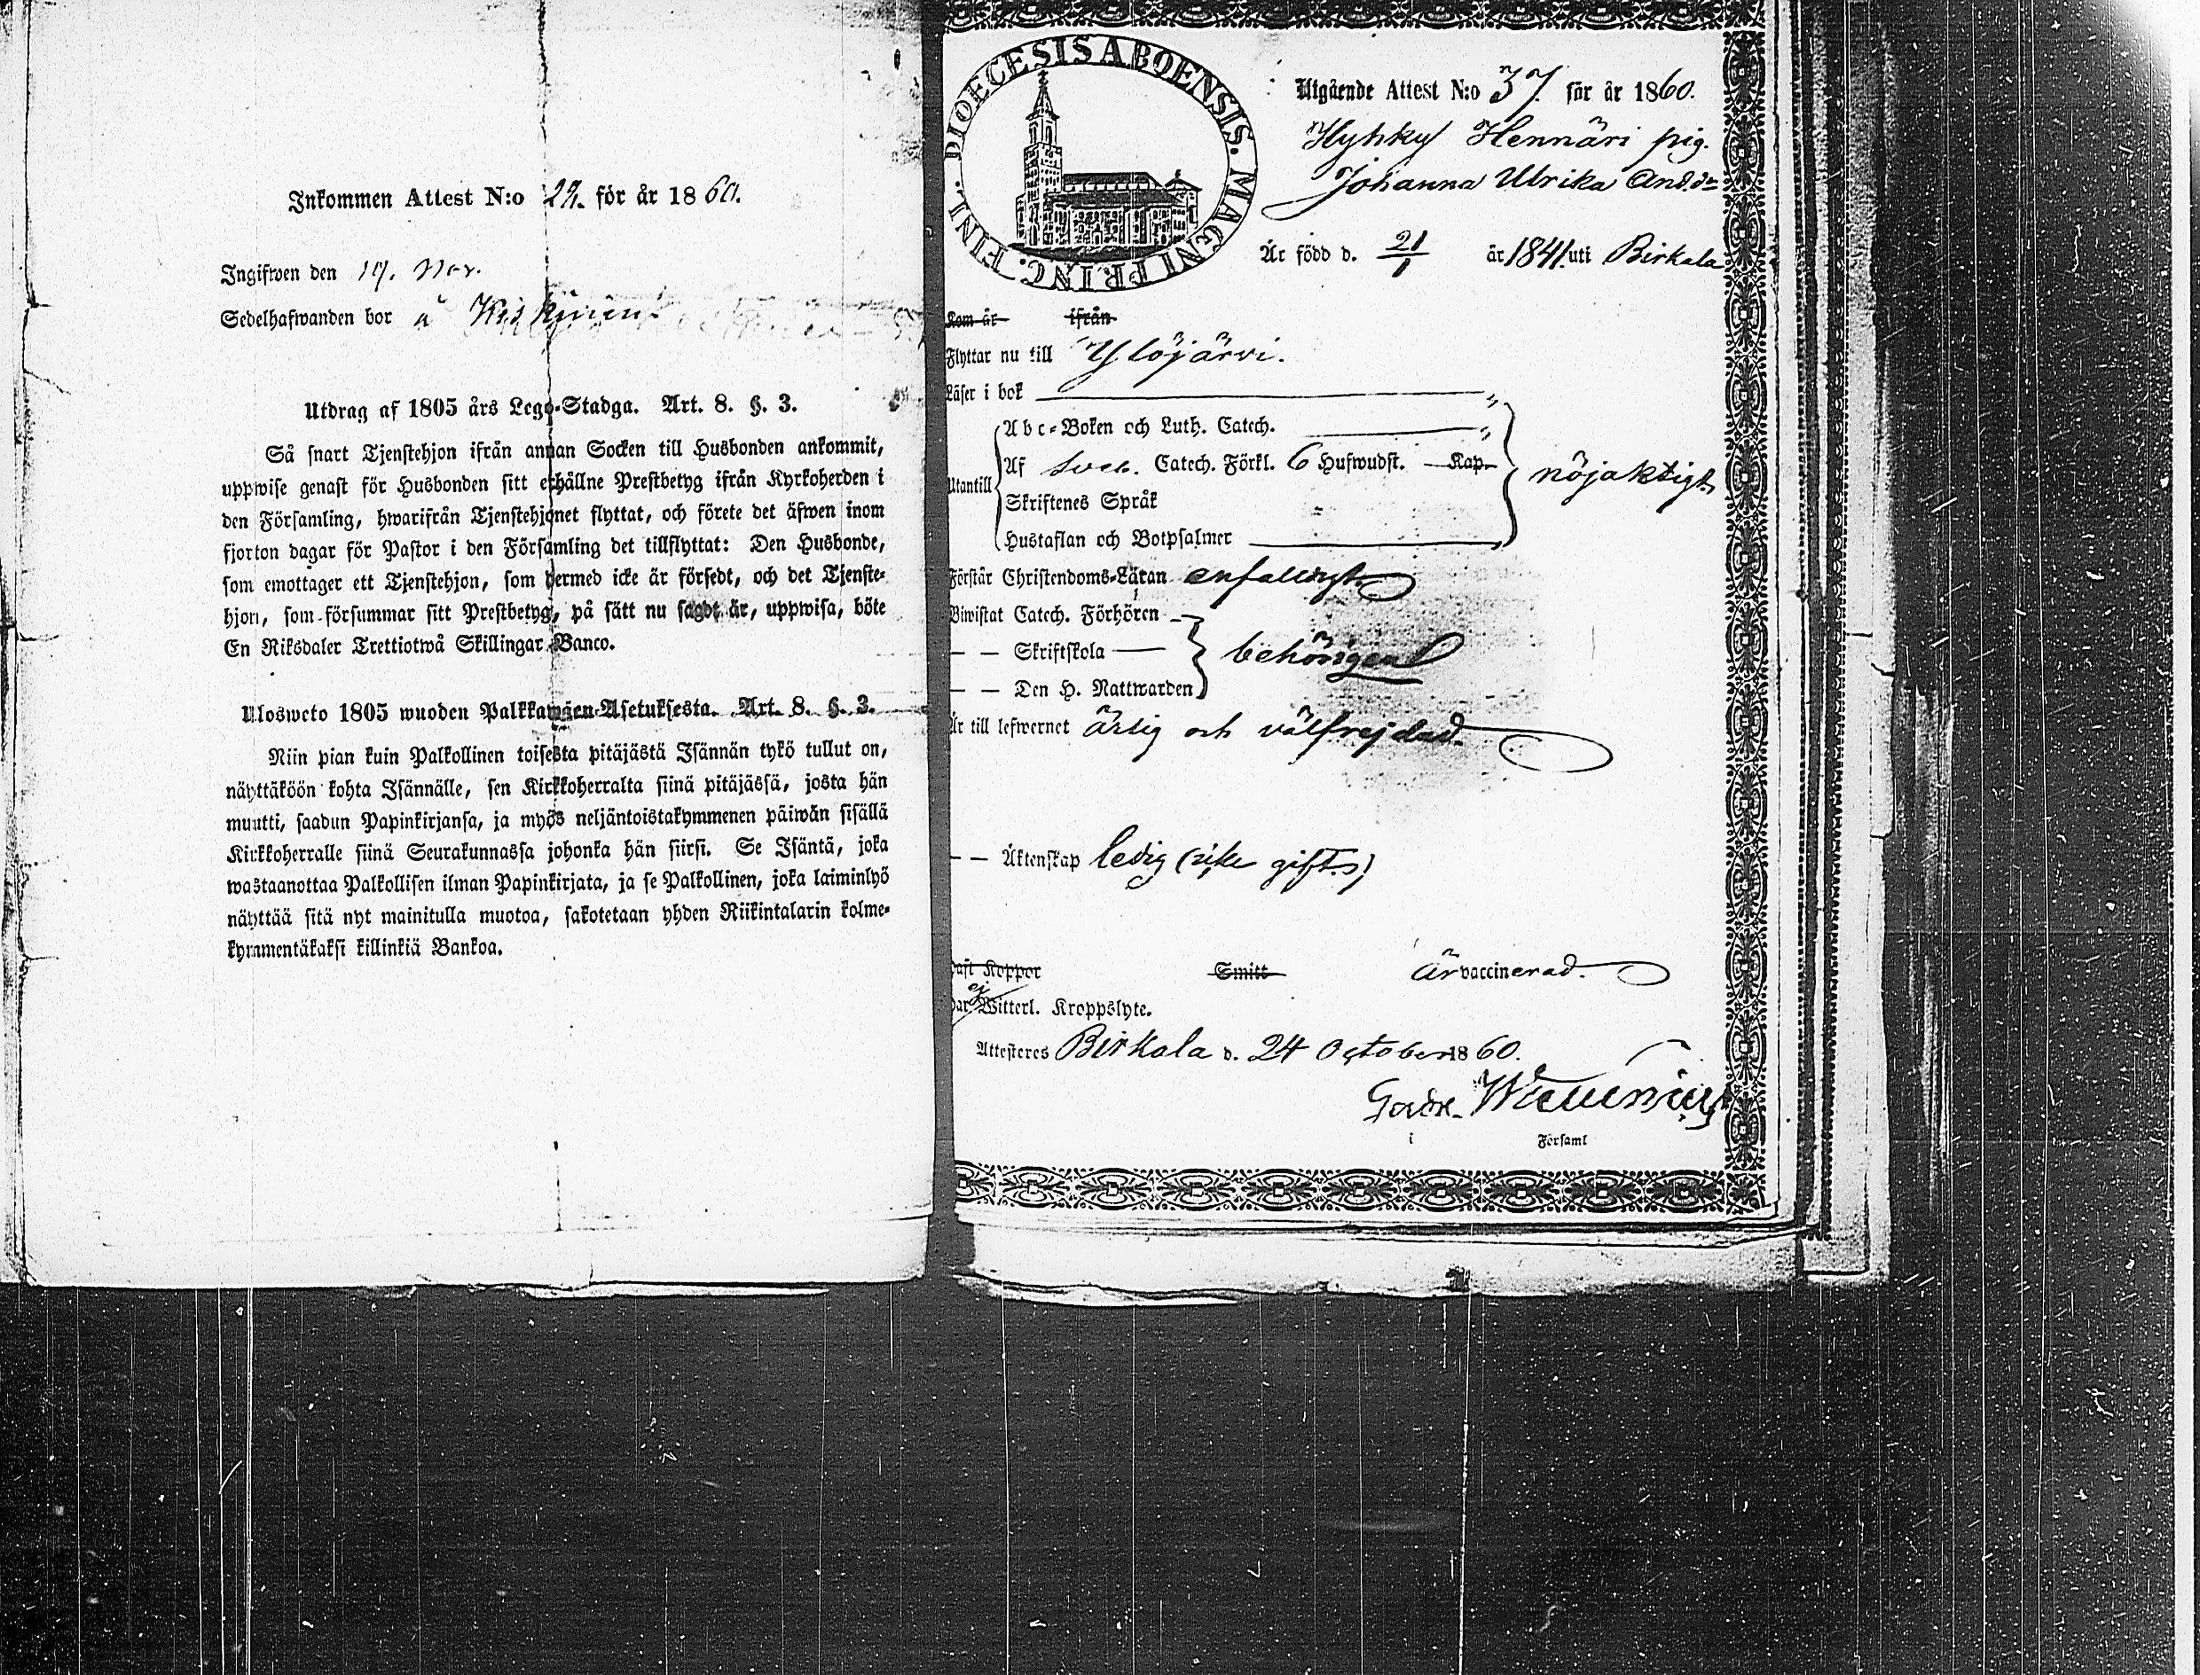 Inkommen Attest N:o 29. för år 1860.
Ingifwen den 19. Nov.
Sedelhafwanden bor å
Utdrag af 1805 års Lego-Stadga. Art. 8. §. 3.
Så snart Tjenstehjon ifrån annan Socken till Husbonden ankommit,
uppwise genast för Husbonden sitt erhållne Prestbetyg ifrån Kyrkoherden i
den Församling, hwarifrån Tjenstehjonet flyttat, och förete det äfwen inom
fjorton dagar för Pastor i den Församling det tillflyttat: Den Husbonde,
som emottager ett Tjenstehjon, som dermed icke är försedt, och det Tjenste-
hjon, som försummar sitt Prestbetyg, på sätt nu sagdt är, uppwisa, böte
En Riksdaler Trettiotwå Skillingar Banco.
Ulosweto 1805 wuoden Palkkawäen-Asetuksesta. Art. 8. §. 3.
Niin pian kuin Palkollinen toisesta pitäjästä Isännän tykö tullut on,
näyttäköön kohta Isännälle, sen Kirkkoherralta siinä pitäjässä, josta hän
muutti, saadun Papinkirjansa, ja myös neljäntoistakymmenen päiwän sisällä
Kirkkoherralle siinä Seurakunnassa johonka hän siirsi. Se Isäntä, joka
wastaanottaa Palkollisen ilman Papinkirjata, ja se Palkollinen, joka laiminlyö
näyttää sitä nyt mainitulla muotoa, sakotetaan yhden Riikintalarin kolme-
kymmentäkaksi killinkiä Bankoa.
DIOECESIS ABOENSIS. MAGNI PRINC. FINL.
Utgående Attest N:o 37. för år 1860.
Hyhky Hennäri pig.
Johanna Ulrika And.dr
Är född d. 21/1 år 1841. uti Birkala
Kom år ifrån
Flyttar nu till Ylöjärvi.
Läser i bok
Abc-Boken och Luth. Catech.
Utantill Af Sveb. Catech. Förkl. 6 Hufwudst. Kap. nöjaktigt
Skriftenes Språk
Hustaflan och Botpsalmer
Förstår Christendoms-Läran enfalldigt
Biwistat Catech. Förhören
— — Skriftskola behörigen
— — Den H. Nattwarden
Är till lefwernet ärlig och välfrejdad.
— — Äktenskap ledig (icke gift.)
Haft Koppor Smitt är vaccinerad.
Har ej Witterl. Kroppslyte.
Attesteres Birkala d. 24 October 1860.
i Församl